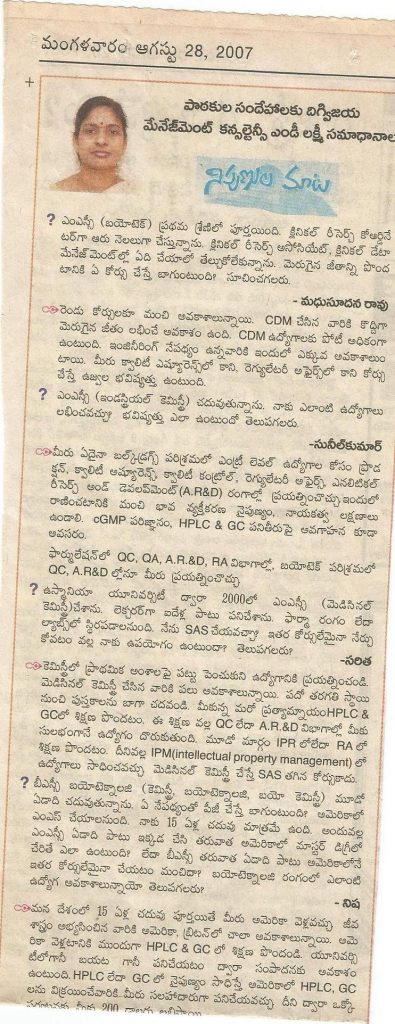 మంగళవారం ఆగస్టు 28, 2007
పాఠకుల సందేహాలకు దిగ్విజయ
మేనేజ్‌మెంట్ కన్సల్టెన్సీ ఎండీ లక్ష్మీ సమాధానాలు
నిపుణుల మాట
? ఎంఎస్సీ (బయోటెక్) ప్రథమ శ్రేణిలో పూర్తయింది. క్లినికల్ రీసెర్చ్ కోఆర్డినే
టర్‌గా ఆరు నెలలుగా చేస్తున్నాను. క్లినికల్ రీసెర్చ్ అసోసియేట్, క్లినికల్ డేటా
మేనేజ్‌మెంట్‌ల్లో ఏది చేయాలో తేల్చుకోలేకున్నాను. మెరుగైన జీతాన్ని పొంద
టానికి ఏ కోర్సు చేస్తే బాగుంటుంది? సూచించగలరు.
- మధుసూదన రావు
రెండు కోర్సులకూ మంచి అవకాశాలున్నాయి. CDM చేసిన వారికి కొద్దిగా
మెరుగైన జీతం లభించే అవకాశం ఉంది. CDM ఉద్యోగాలకు పోటీ అధికంగా
ఉంటుంది. ఇంజినీరింగ్ నేపథ్యం ఉన్నవారికి ఇందులో ఎక్కువ అవకాశాలుం
టాయి. మీరు క్వాలిటీ ఎష్యూరెన్స్‌లో కాని, రెగ్యులేటరీ అఫైర్స్‌లో కాని కోర్సు
చేస్తే ఉజ్వల భవిష్యత్తు ఉంటుంది.
? ఎంఎస్సీ (ఇండస్ట్రియల్ కెమిస్ట్రీ) చదువుతున్నాను. నాకు ఎలాంటి ఉద్యోగాలు
లభించవచ్చు? భవిష్యత్తు ఎలా ఉంటుందో తెలుపగలరు.
-సునీల్‌కుమార్
మీరు ఏదైనా బల్క్‌డ్రగ్స్ పరిశ్రమలో ఎంట్రీ లెవల్ ఉద్యోగాల కోసం ప్రొడ
క్షన్, క్వాలిటీ ఆష్యూరెన్స్, క్వాలిటీ కంట్రోల్, రెగ్యులేటరీ అఫైర్స్, ఎనలిటికల్
రీసెర్చ్ అండ్ డెవలప్‌మెంట్ (A.R&D) రంగాల్లో ప్రయత్నించొచ్చు.ఇందులో
రాణించటానికి మంచి భావ వ్యక్తీకరణ నైపుణ్యం, నాయకత్వ లక్షణాలు
ఉండాలి. cGMP పరిజ్ఞానం, HPLC & GC పనితీరుపై అవగాహన కూడా
అవసరం.
ఫార్ములేషన్‌లో QC, QA, A.R.&D, RA విభాగాల్లో, బయోటెక్ పరిశ్రమలో
QC, A.R&D ల్లోనూ మీరు ప్రయత్నించొచ్చు
? ఉస్మానియా యూనివర్సిటీ ద్వారా 2000లో ఎంఎస్సీ (మెడిసినల్
కెమిస్ట్రీ)చేశాను. లెక్చరర్‌గా ఐదేళ్ల పాటు పనిచేశాను. ఫార్మా రంగం లేదా
ల్యాబ్స్‌లో స్థిరపడాలనుంది. నేను SAS చేయవచ్చా? ఇతర కోర్సులేమైనా నేర్చు
కోవటం వల్ల నాకు ఉపయోగం ఉంటుందా? తెలుపగలరు?
-సరిత
కెమిస్ట్రీలో ప్రాథమిక అంశాలపై పట్టు పెంచుకుని ఉద్యోగానికి ప్రయత్నించండి.
మెడిసినల్ కెమిస్ట్రీ చేసిన వారికి పలు అవకాశాలున్నాయి. పదో తరగతి స్థాయి
నుంచి పుస్తకాలను బాగా చదవండి. మీకున్న మరో ప్రత్యామ్నాయంHPLC &
GCలో శిక్షణ పొందటం. ఈ శిక్షణ వల్ల QC లేదా A.R.&D విభాగాల్లో మీకు
సులభంగానే ఉద్యోగం దొరుకుతుంది. మూడో మార్గం IPR లోలేదా RA లో
శిక్షణ పొందటం. దీనివల్ల IPM(intellectual property management) లో
ఉద్యోగాలు సాధించవచ్చు. మెడిసినల్ కెమిస్ట్రీ చేస్తే SAS తగిన కోర్సుకాదు.
? బీఎస్సీ బయోటెక్నాలజి (కెమిస్ట్రీ, బయోటెక్నాలజి, బయో కెమిస్ట్రీ) మూడో
ఏడాది చదువుతున్నాను. ఏ నేపథ్యంతో పీజీ చేస్తే బాగుంటుంది? అమెరికాలో
ఎంఎస్ చేయాలనుంది. నాకు 15 ఏళ్ల చదువు మాత్రమే ఉంది. అందువల్ల
ఎంఎస్సీ ఏడాది పాటు ఇక్కడ చేసి తరువాత అమెరికాలో మాస్టర్ డిగ్రీలో
చేరితే ఎలా ఉంటుంది? లేదా బీఎస్సీ తరువాత ఏడాది పాటు అమెరికాలోనే
ఇతర కోర్సులేమైనా చేయటం మంచిదా? బయోటెక్నాలజి రంగంలో ఎలాంటి
ఉద్యోగ అవకాశాలున్నాయో తెలుపగలరు?
- నిష
మన దేశంలో 15 ఏళ్ల చదువు పూర్తయితే మీరు అమెరికా వెళ్లవచ్చు. జీవ
శాస్త్రం అభ్యసించిన వారికి అమెరికా, బ్రిటన్‌లో చాలా అవకాశాలున్నాయి. అమె
రికా వెళ్లటానికి ముందుగా HPLC & GC లో శిక్షణ పొందండి. యూనివర్సి
టీలోగానీ బయట గానీ పనిచేయటం ద్వారా సంపాదనకు అవకాశం
ఉంటుంది. HPLC లేదా GC లో నైపుణ్యం సాధిస్తే అమెరికాలో HPLC, GC
లను విక్రయించేవారికి మీరు సలహాదారుగా పనిచేయవచ్చు. దీని ద్వారా ఒక్కో
మీకు 200 డాలర్లు